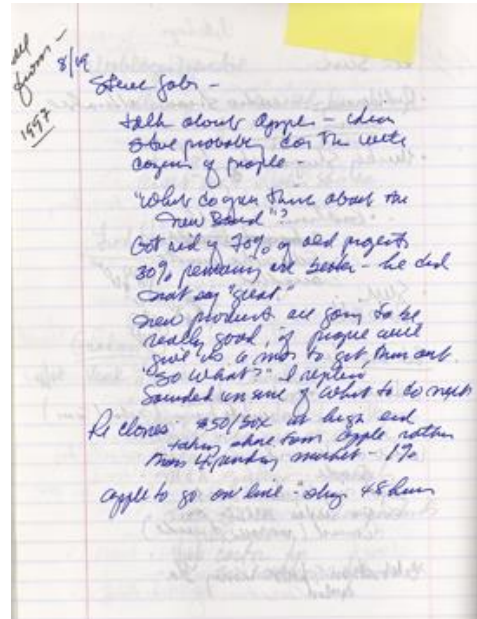 8/19
1997
Steve Jobs -
talk about Apple -
Steve probably
of people -
"What do you think about the
new Board"?
Got rid of 70% of old projects
30% remaining are better - he did
not say "great"
new products are going to be
really good, if people will
give us a mos to get them out.
"So what?" I replied
Sounded unsure of what to do next
Re clones - $50/50X at high end
taking share from Apple rather
than expanding market - 1%
Apple to go on line - 48 hours